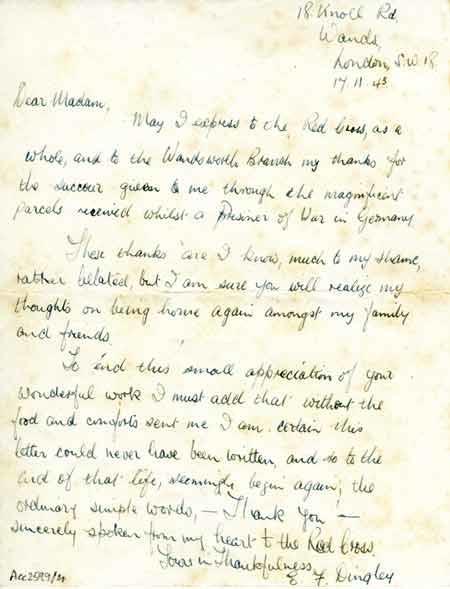 18. Knoll Rd
Wands,
London, S.W. 18.
17. 11. 45
Dear Madam,
May I express to the Red Cross, as a
whole, and to the Wandsworth Branch my thanks for
the succour given to me through the magnificent
parcels received whilst a Prisoner of War in Germany.
These thanks are I know, much to my shame,
rather belated, but I am sure you will realize my
thoughts on being home again amongst my family
and friends.
To end this small appreciation of your
wonderful work I must add that without the
food and comforts sent me I am certain this
letter could never have been written, and so to the
end of that life, seemingly begin again, the
ordinary simple words, — Thank You! —
sincerely spoken from my heart to the Red Cross.
Yours in Thankfulness
E. F. Dingley
Acc2599/21